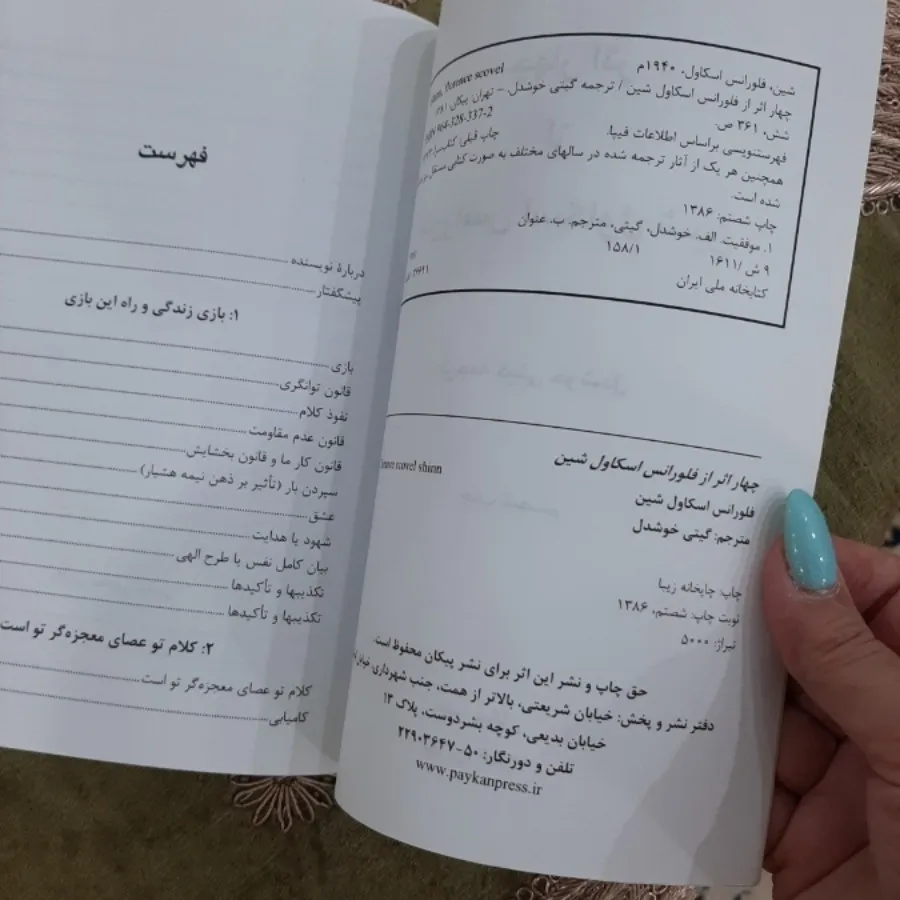 شین، فلورانس اسکاول، ۱۹۴۰م
florence scovel
چهار اثر از فلورانس اسکاول شین / ترجمه گیتی خوشدل. – تهران: پیکان،
شش، ۳۶۱ ص.
ISBN 964-328-337-2
فهرستنویسی براساس اطلاعات فیپا.
چاپ قبلی:
همچنین هر یک از آثار ترجمه شده در سالهای مختلف به صورت کتابی مستقل
شده است.
چاپ شصتم: ۱۳۸۶
۱. موفقیت. الف. خوشدل، گیتی، مترجم. ب. عنوان
۹ ش /۱۶۱۱
۱۵۸/۱
کتابخانه ملی ایران
چهار اثر از فلورانس اسکاول شین
scovel shinn
فلورانس اسکاول شین
مترجم: گیتی خوشدل
چاپ: چاپخانه زیبا
نوبت چاپ: شصتم، ۱۳۸۶
تیراژ: ۵۰۰۰
حق چاپ و نشر این اثر برای نشر پیکان محفوظ است.
دفتر نشر و پخش: خیابان شریعتی، بالاتر از همت، جنب شهرداری،
خیابان بدیعی، کوچه بشردوست، پلاک ۱۳
تلفن و دورنگار: ۵۰-۲۲۹۰۳۶۴۷
www.paykanpress.ir
فهرست
دربارهٔ نویسنده
پیشگفتار
۱: بازی زندگی و راه این بازی
بازی
قانون توانگری
نفوذ کلام
قانون عدم مقاومت
قانون کار ما و قانون بخشایش
سپردن بار (تأثیر بر ذهن نیمه هشیار)
عشق
شهود یا هدایت
بیان کامل نفس یا طرح الهی
تکذیبها و تأکیدها
تکذیبها و تأکیدها
۲: کلام تو عصای معجزه‌گر تو است
کلام تو عصای معجزه‌گر تو است
کامیابی